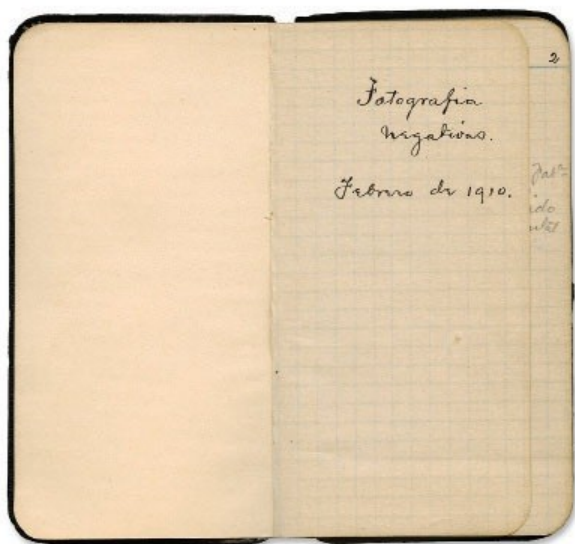 Fotografia
negativas.
Febrero de 1910.
2